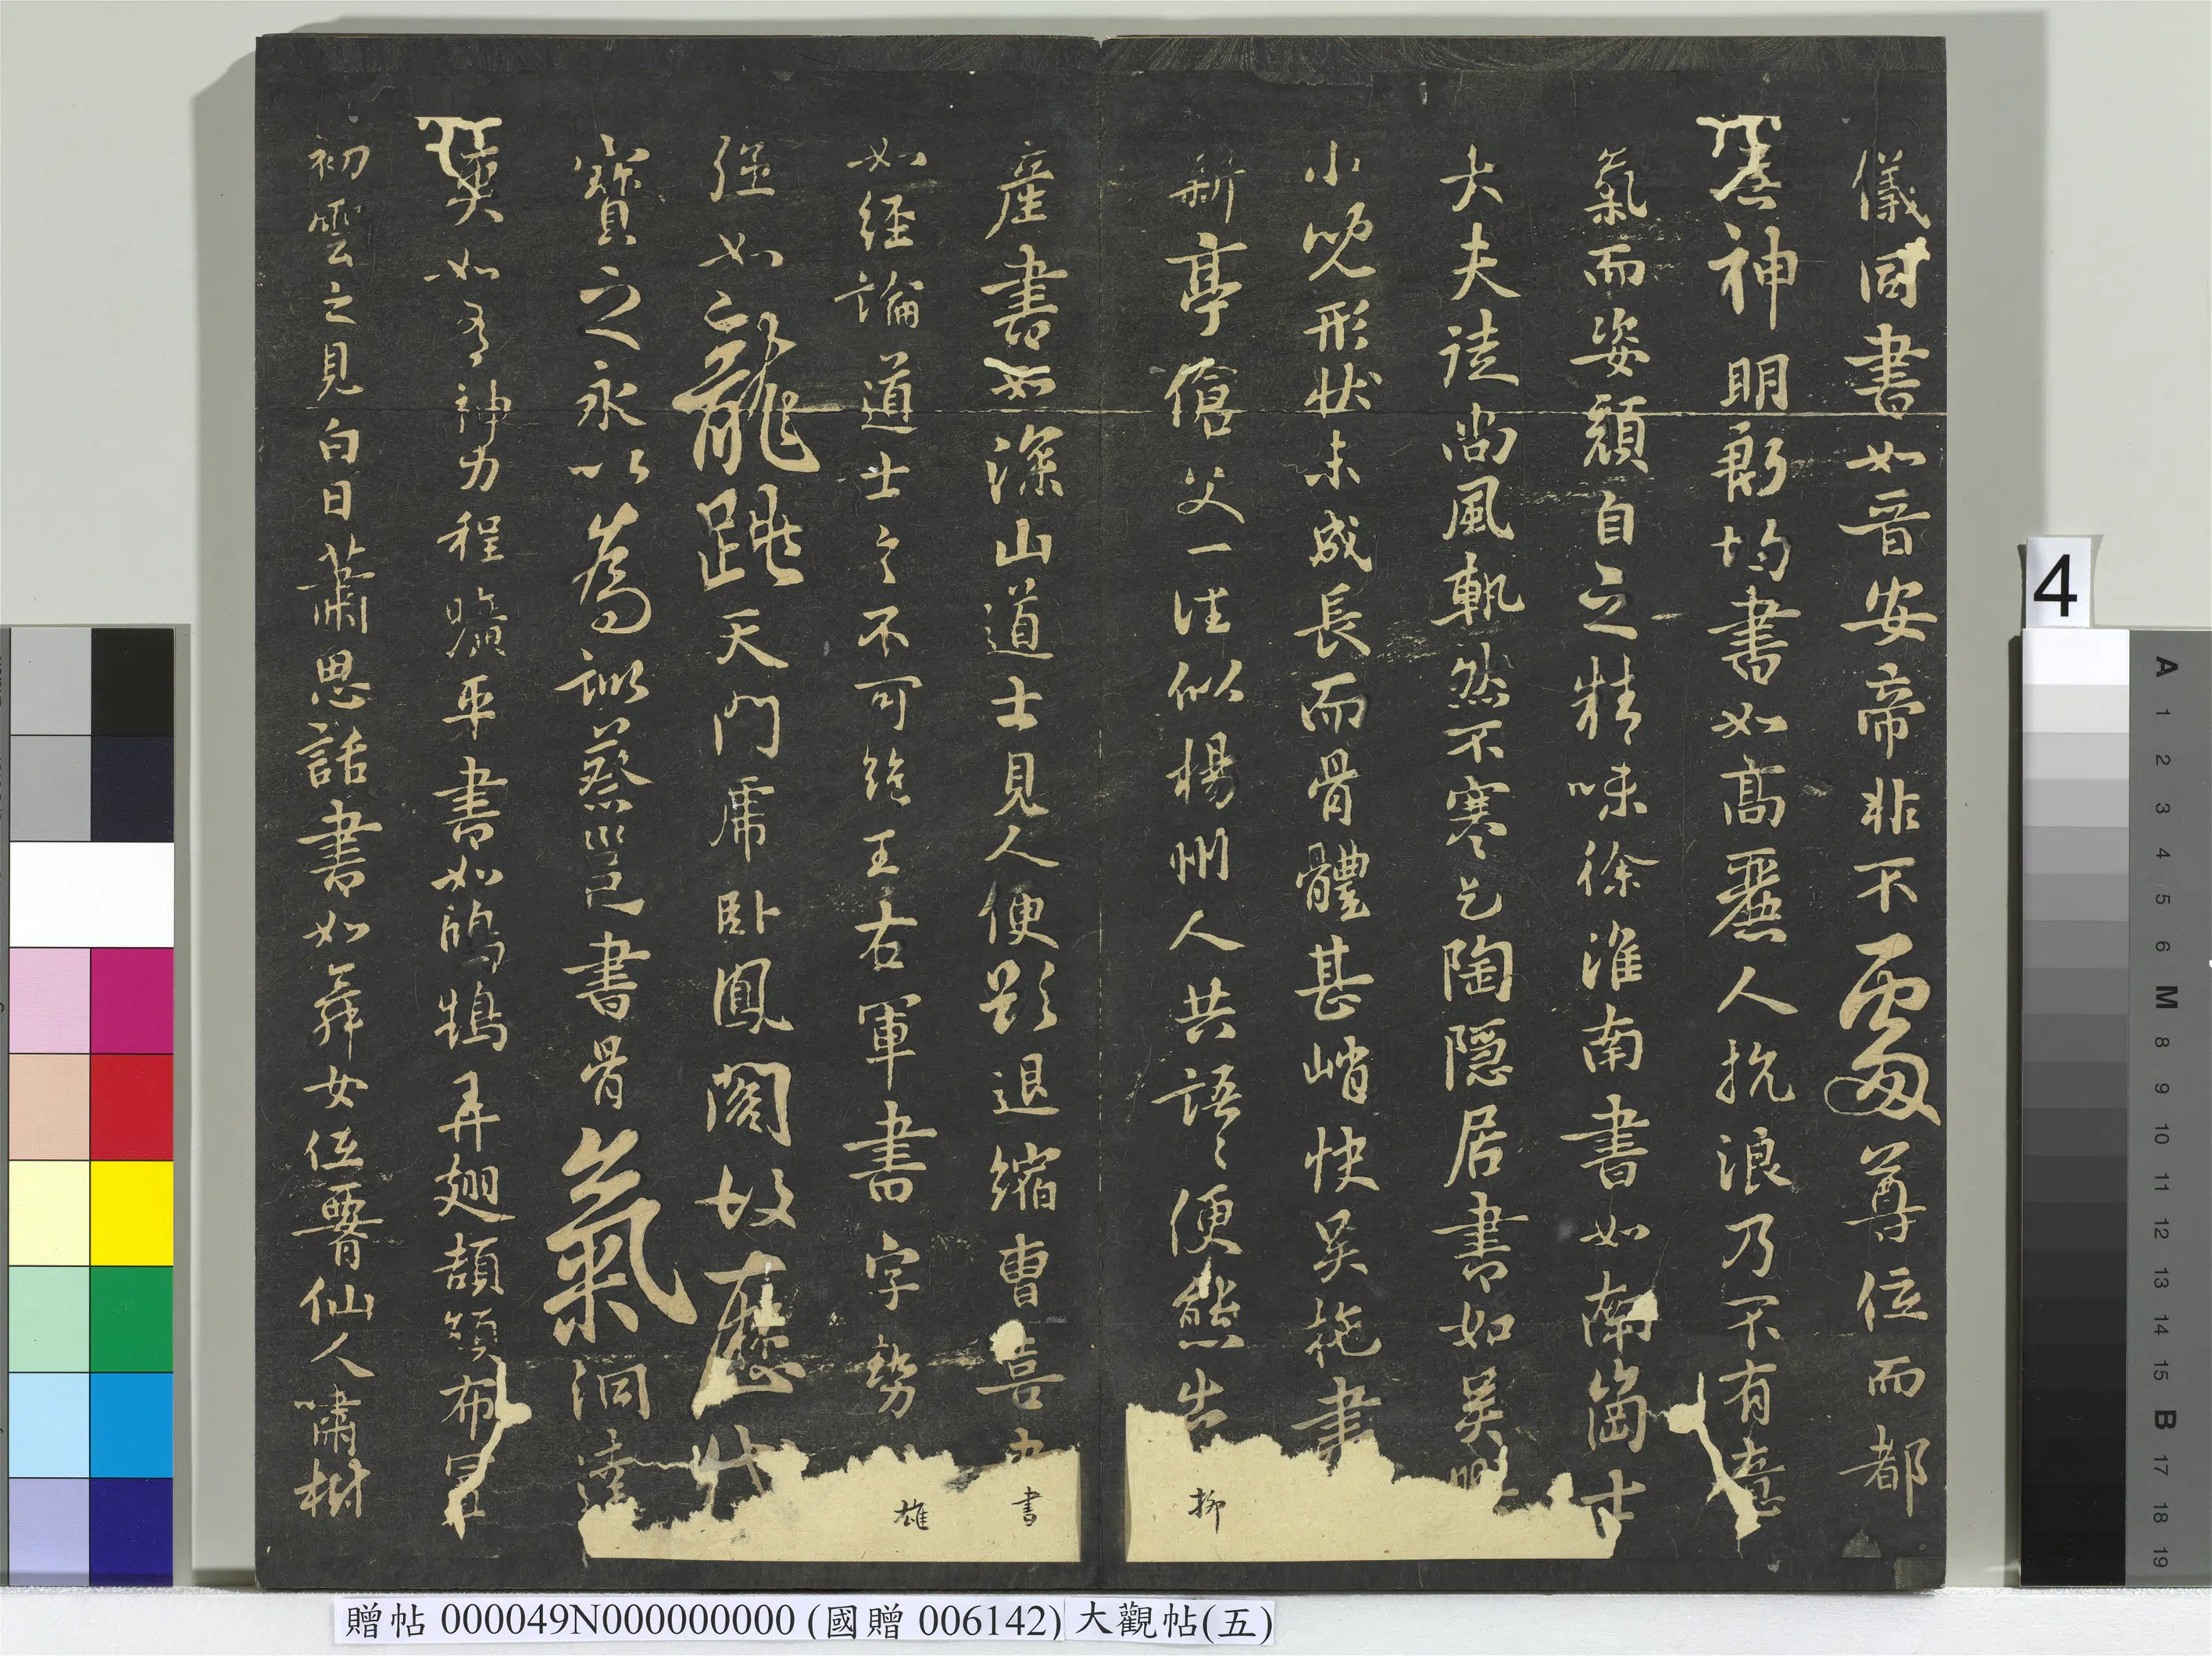 儀同書如晉安帝非不處尊位而都
無神明殷均書如高麗人抗浪乃不有意
氣而姿顏自乏精味徐淮南書如南崗士
大夫徒尚風軌然不寒乞陶隱居書如吳興
小兒形狀未成長而骨體甚峭快吳施書
新亭傖父一往似楊州人共語語便態出柳
產書如深山道士見人便欲退縮曹喜書
如經論道士言不可絕王右軍書字勢雄
強如龍跳天門虎臥鳳閣故歷代
寶之永以為訓蔡邕書骨氣洞達
爽如有神力程曠平書如鴻鵠弄翅頡頏布置
初雲之見白日蕭思話書如舞女低腰仙人嘯樹
4
A 1 2 3 4 5 6 M 8 9 10 11 12 13 14 15 B 17 18 19
贈帖 000049N000000000 (國贈 006142) 大觀帖(五)